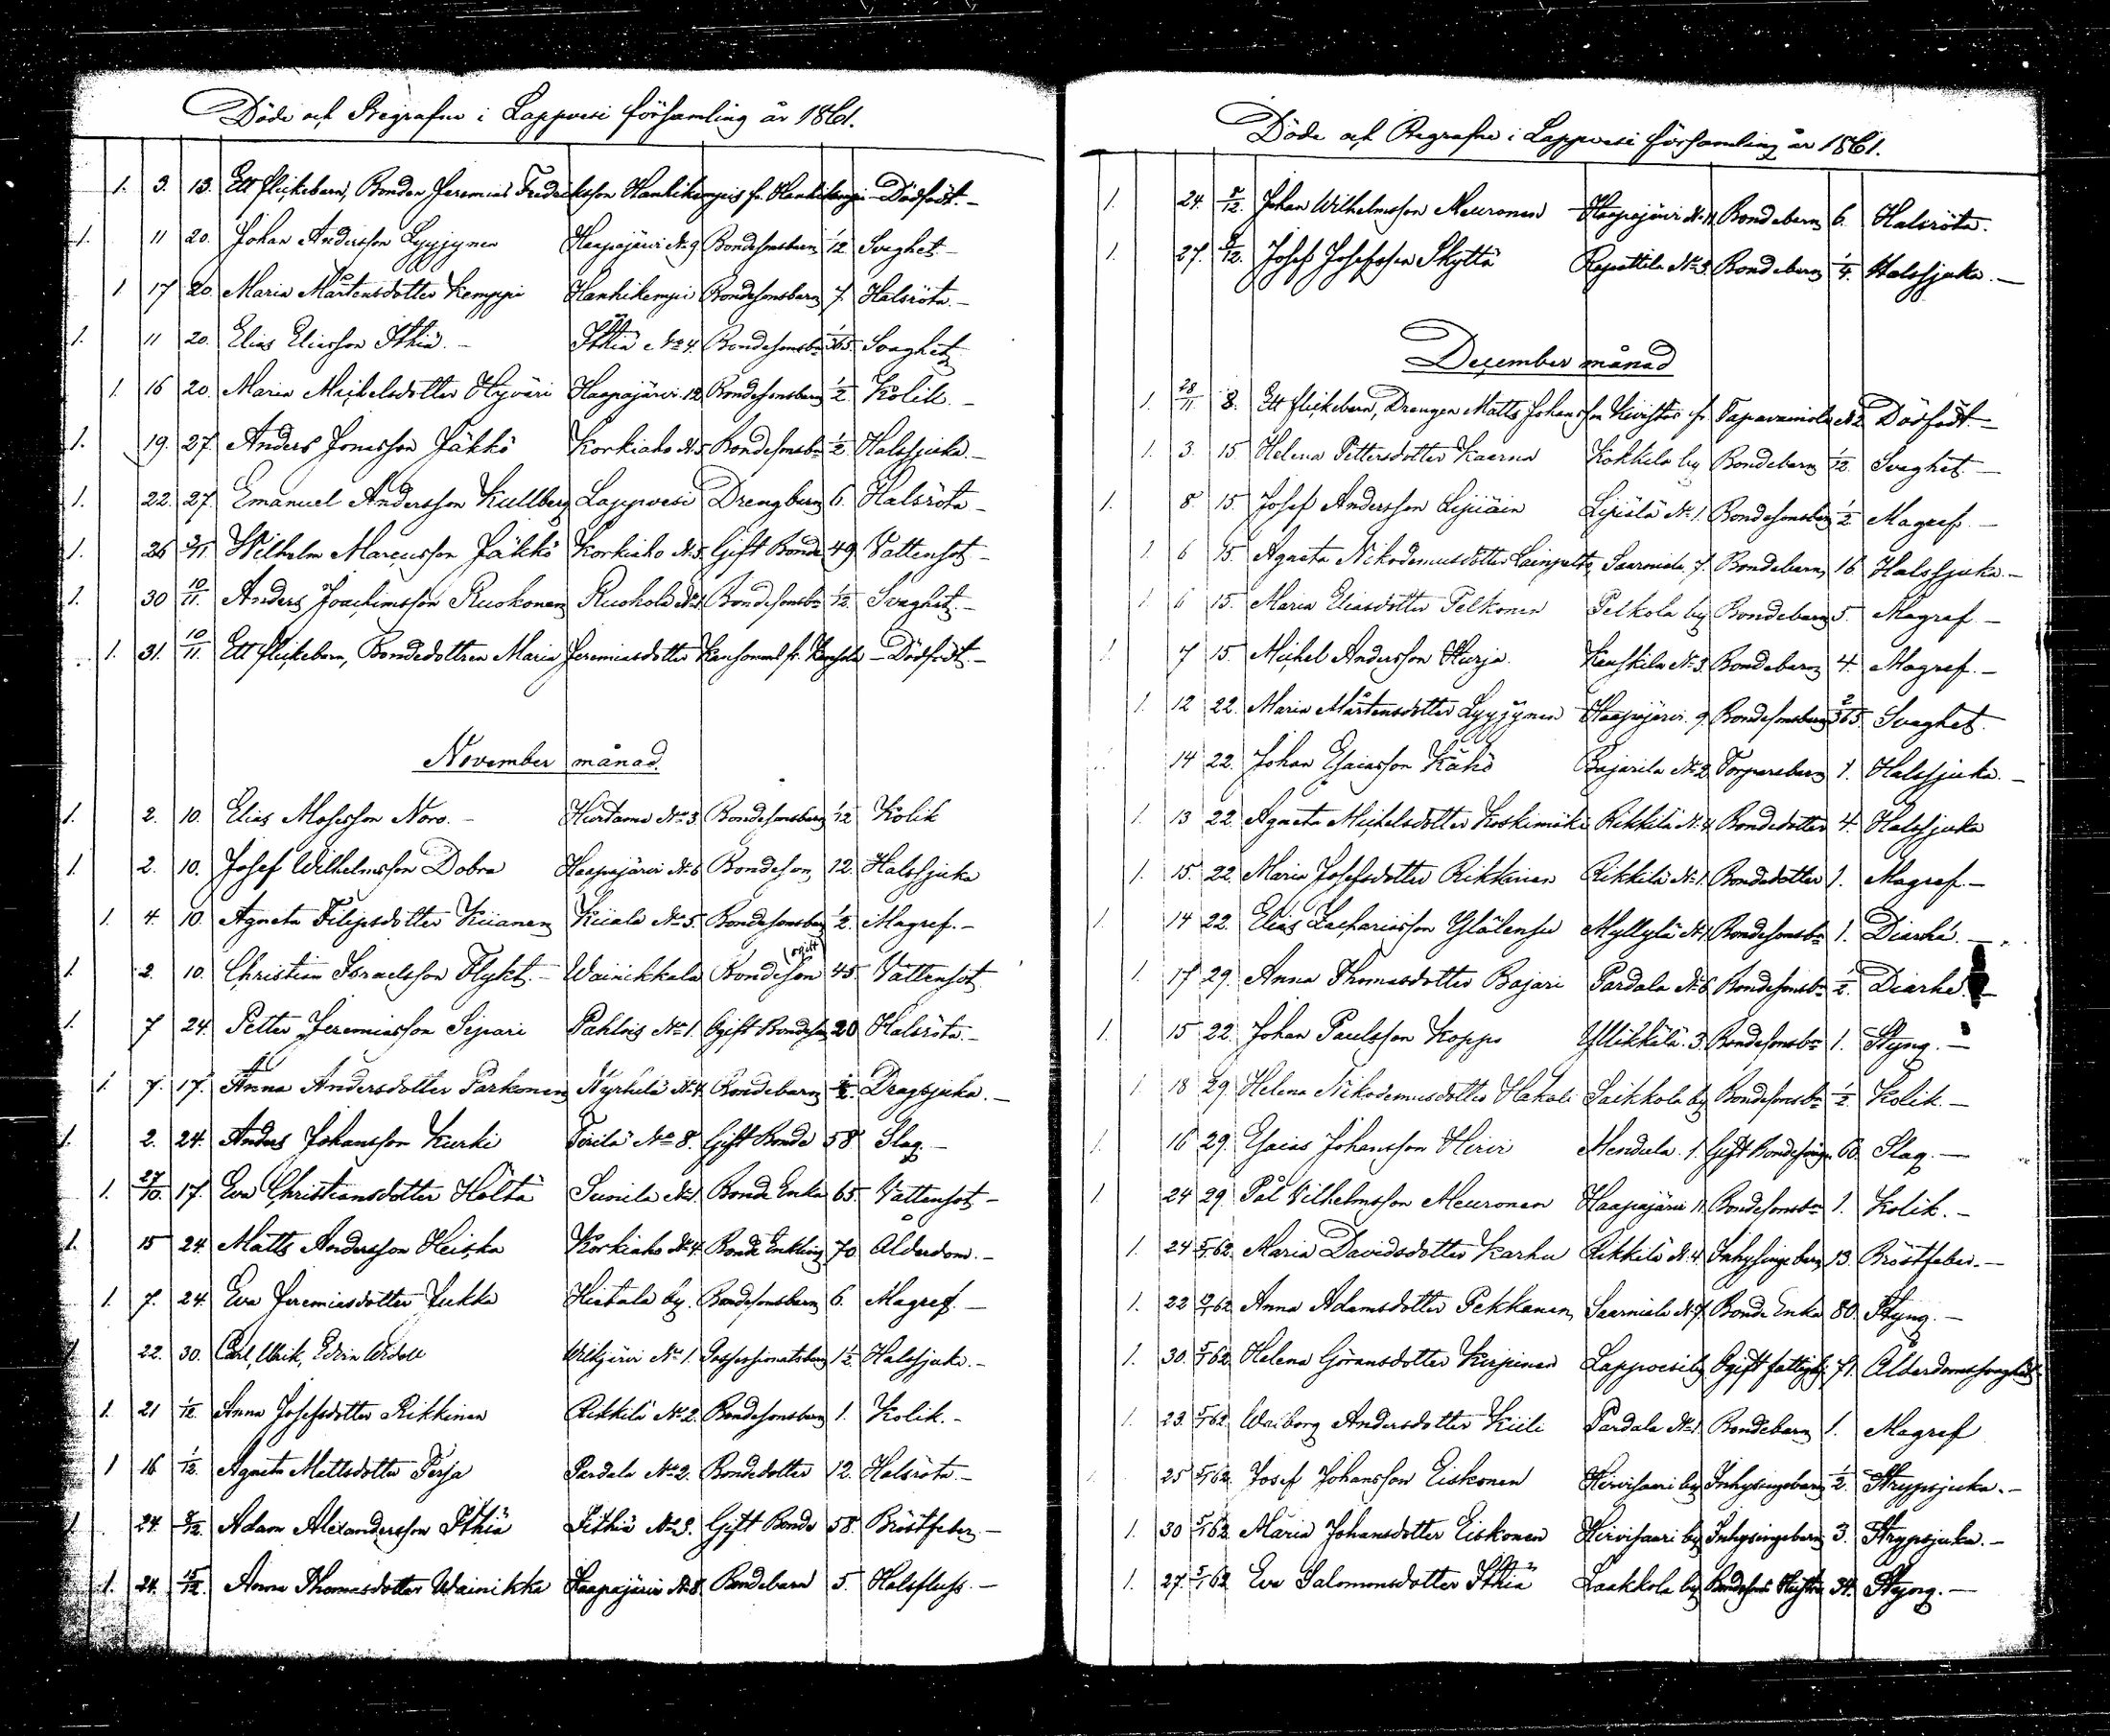 Döde och Begrafne i Lappvesi församling år 1861.
1. 3. 13. Ett flickebarn, Bonden Jeremias Fredriksson Hanhikempis fr. Hanhikempi – Dödfödt. –
1. 11 20. Johan Andersson Lyyjynen Haapajärvi No 9 Bondesonsbarn 1/12 Svaghet. –
1 17 20. Maria Mårtensdotter Kemppi Hanhikempi Bondesonsbarn 7. Halsröta. –
1. 11 20. Elias Eliasson Ithiä. – Ithiä No 4. Bondesonsbn 1/365. Svaghet
1. 16 20. Maria Michelsdotter Hyväri Haapajärvi 12 Bondesonsbarn 1/2 Kolik. –
1. 19. 27. Anders Jonasson Jäkkö Korkiaho No 5 Bondesonsbn 1/2. Halssjuka. –
1. 22. 27. Emanuel Andersson Kullberg Lappvesi Drengbarn 6. Halsröta –
1. 26 3/11. Wilhelm Marcusson Jäkkö Korkiaho No 5. Gift Bonde 49 Vattensot –
1. 30 10/11. Anders Joachimsson Ruokonen Ruohola No 1 Bondesonsbn 1/12. Svaghet. –
1. 31. 10/11. Ett flickebarn, Bondedottren Maria Jeremiasdotter fr. – Dödfödt. –
November månad.
1. 2. 10. Elias Mosesson Noro. – Hurtama No 3 Bondesonsbarn 1/12 Kolik
1. 2. 10. Josef Wilhelmsson Dobra Haapajärvi No 6 Bondeson 12. Halssjuka
1. 4. 10. Agneta Filipsdotter Kiianen Kiiala No 5. Bondesonsbarn 1/2. Magref. –
1. 2. 10. Christian Israelsson Flykt. – Wainikkala Bondeson (ogift 45. Vattensot
1. 7 24. Petter Jeremiasson Sipari Pahlois No 1. Ogift Bondeson 20 Halsröta. –
1. 7. 17. Anna Andersdotter Parkonen Nyrhilä No 4. Bondebarn Dragsjuka. –
1. 2. 24. Anders Johansson Kurki Toiila No 8. Gift Bonde 58 Slag. –
1. 27/10. 17. Eva Christiansdotter Höltä Sunila No 1. Bonde Enka 65. Vattensot –
1. 15 24. Matts Andersson Heiska Korkiaho No 4. Bonde Enkling 70 Ålderdom. –
1. 7. 24. Eva Jeremiasdotter Jukka Hietala by. Bondesonsbarn 6. Magref. –
1 22. 30. Carl, Ulrik, Edvin Widell Wilkjärvi No 1. Possessionatsbarn 1 1/2. Halssjuka. –
1. 21 1/12. Anna Josefsdotter Rikkinen Rikkilä No 2. Bondesonsbarn 1. Kolik. –
1 16 1/12. Agneta Mattsdotter Perja Pardala No 2. Bondedotter 12. Halsröta. –
1. 24. 8/12. Adam Alexandersson Ithiä Ithiä No 3. Gift Bonde 58. Bröstfeber –
1. 24. 15/12. Anna Thomasdotter Wainikka Haapajärvi No 8. Bondebarn 5. Halsfluss. –
Döde och Begrafne i Lappvesi församling år 1861.
1. 24. 8/12. Johan Wilhelmsson Meuronen Haapajärvi No 11 Bondebarn 6. Halsröta.
1. 27. 8/12. Josef Josefsson Skyttä Rapattila No 3. Bondebarn 1/4. Halssjuka. –
December månad
1. 28/11 8. Ett flickebarn, Drengen Matts Johansson Kivistös fr. Tapavainola No 2 Dödfödt. –
1. 3. 15 Helena Pettersdotter Kaarna Kokkila by Bondebarn 1/12. Svaghet –
1. 8. 15. Josef Andersson Lipiäin Lipiälä No 1. Bondesonsbarn 1/2 Magref. –
1. 6 15. Agneta Nikodemusdotter Lainpelto Saarniala 7. Bondebarn 16 Halssjuka. –
1. 6 15. Maria Eliasdotter Pelkonen Pelkola by Bondebarn 5. Magref –
1. 7 15. Michel Andersson Hurja Kauskila No 3. Bondebarn 4. Magref. –
1. 12 22. Maria Mårtensdotter Lyyjynen Haapajärvi 9. Bondesonsbarn 2/365. Svaghet.
14 22. Johan Esaiasson Kähö Bajarila No 2 Torparebarn 1. Halssjuka. –
1. 13 22. Agneta Michelsdotter Koskimäki Rikkilä No 4 Bondedotter 4. Halssjuka
1. 15. 22. Maria Josefsdotter Rikkinen Rikkilä No 1. Bondedotter 1. Magref –
1 14 22. Elias Zachariasson Yläleusu Myllylä No 1 Bondesonsbn 1. Diarhé. –
1. 17 29. Anna Thomasdotter Bajari Pardala No 6 Bondesonsbn 1/2. Diarhé. –
1. 15 22. Johan Paulsson Koppo Yllikkälä. 3. Bondesonsbn 1. Styng. –
1. 18 29. Helena Nikodemusdotter Hakali Saikkola by Bondesonsbn 1/2. Kolik. –
1. 16 29. Esaias Johansson Hirvi Mendula. 1. Gift Bondesöng. 60. Slag. –
1. 24 29. Pål Vilhelmsson Meuronen Haapajärvi 11. Bondesonsbn 1. Kolik. –
1. 24 5/1 62. Maria Davidsdotter Karhu Rikkilä No 4. Inhysingebarn 13. Bröstfeber. –
1. 22 5/1 62. Anna Adamsdotter Pekkanen Saarniala No 7. Bonde Enka 80. Styng. –
1. 30. 5/1 62. Helena Göransdotter Kirpinen Lappvesi by Ogift fattighj 71. Ålderdomssvaghet
1. 23. 5/1 62. Walborg Andersdotter Kiili Pardala No 1. Bondebarn 1. Magref
25 5/1 62. Josef Johansson Eiskonen Hirvisaari by Inhysingebarn 1/2. Strypsjuka. –
1. 30 5/1 62. Maria Johansdotter Eiskonen Hirvisaari by Inhysingebarn 3. Strypsjuka. –
1. 27. 5/1 62. Eva Salomonsdotter Ithiä Laakkola by Bondesons Hustru 34. Styng. –